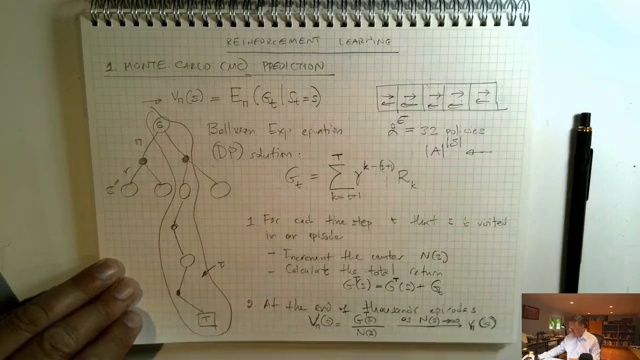 REINFORCEMENT LEARNING
1. MONTE-CARLO (MC) PREDICTION
Vπ(s) = Eπ(Gt | St = s)
Bellman Exp. equation
(DP) solution:
2^5 = 32 policies
|A|^|S| ←
Gt = Σ γ^k-(t+1) Rk
T
k=t+1
S
π
r
s'
τ
T
1 For each time step t that s is visited
in an episode
- Increment the counter N(s)
- Calculate the total return
G^T(s) = G^T(s) + Gt
2. At the end of thousands episodes
Vπ(s) = G(s)/N(s) as N(s)→∞ Vπ(s)